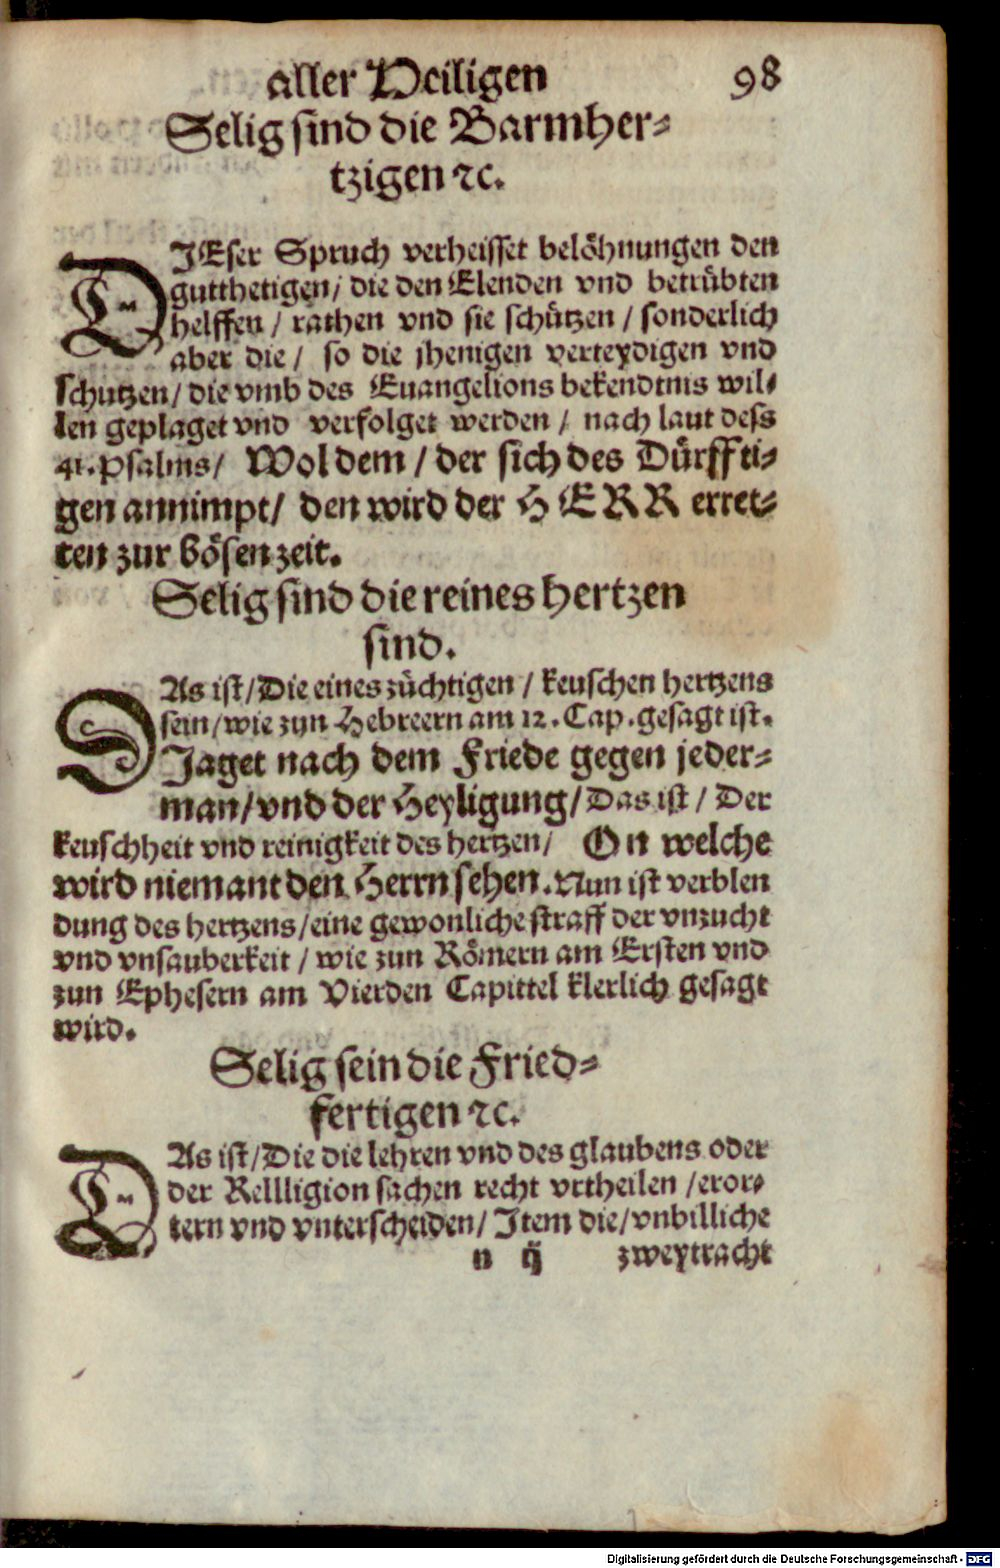 aller Heiligen 98
Selig sind die Barmher⸗
tzigen ⁊c.
DIEser Spruch verheisset belöhnungen den
gutthetigen / die den Elenden vnd betrübten
helffen / rathen vnd sie schützen / sonderlich
aber die / so die jhenigen verteydigen vnd
schutzen / die vmb des Euangelions bekendtnis wil⸗
len geplaget vnd verfolget werden / nach laut dess
41. Psalms / Wol dem / der sich des Dürffti⸗
gen annimpt / den wird der HERR erret⸗
ten zur bösen zeit.
Selig sind die reines hertzen
sind.
DAs ist / Die eines züchtigen / keuschen hertzens
sein / wie zun Hebreern am 12. Cap. gesagt ist.
Jaget nach dem Friede gegen jeder⸗
man / vnd der Heyligung / Das ist / Der
keuschheit vnd reinigkeit des hertzen / On welche
wird niemant den Herrn sehen. Nun ist verblen
dung des hertzens / eine gewonliche straff der vnzucht
vnd vnsauberkeit / wie zun Römern am Ersten vnd
zun Ephesern am Vierden Capittel klerlich gesagt
wird.
Selig sein die Fried⸗
fertigen ⁊c.
DAs ist / Die die lehren vnd des glaubens oder
der Rellligion sachen recht vrtheilen / eror⸗
tern vnd vnterscheiden / Item die / vnbilliche
n ij zweytracht
Digitalisierung gefördert durch die Deutsche Forschungsgemeinschaft - DFG